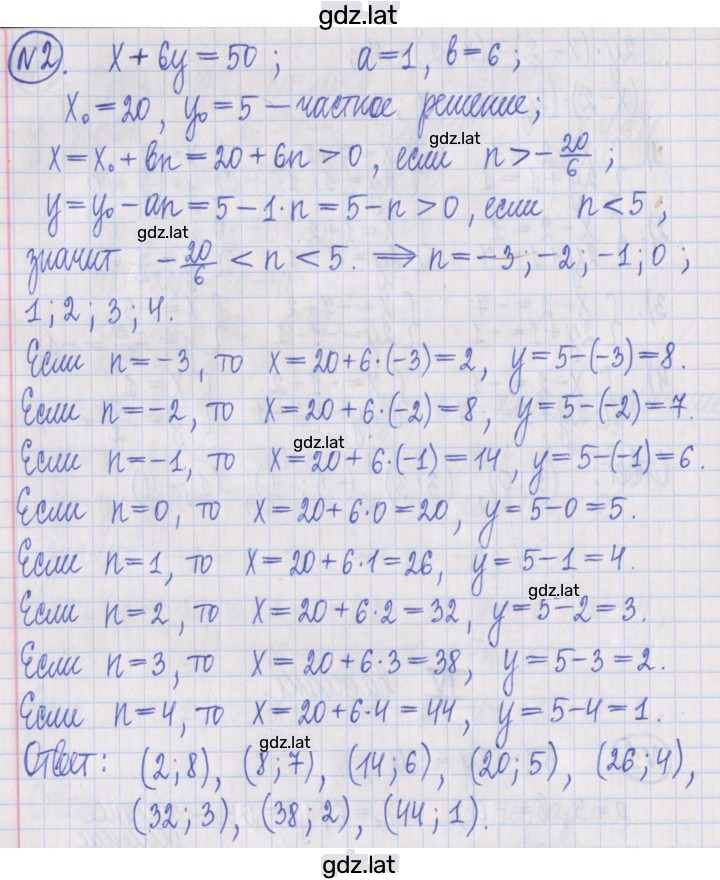 gdz.lat
№2. x + 6y = 50 ; a = 1 , b = 6 ;
x₀ = 20 , y₀ = 5 – частное решение;
gdz.lat
x = x₀ + bn = 20 + 6n > 0 , если n > - 20/6 ;
y = y₀ - an = 5 - 1·n = 5 - n > 0 , если n < 5 ,
gdz.lat
значит - 20/6 < n < 5. ⟹ n = -3 ; -2 ; -1 ; 0 ;
1 ; 2 ; 3 ; 4.
Если n = -3 , то x = 20 + 6·(-3) = 2 , y = 5 - (-3) = 8.
Если n = -2 , то x = 20 + 6·(-2) = 8 , y = 5 - (-2) = 7.
gdz.lat
Если n = -1 , то x = 20 + 6·(-1) = 14 , y = 5 - (-1) = 6.
Если n = 0 , то x = 20 + 6·0 = 20 , y = 5 - 0 = 5.
Если n = 1 , то x = 20 + 6·1 = 26 , y = 5 - 1 = 4.
gdz.lat
Если n = 2 , то x = 20 + 6·2 = 32 , y = 5 - 2 = 3.
Если n = 3 , то x = 20 + 6·3 = 38 , y = 5 - 3 = 2.
Если n = 4 , то x = 20 + 6·4 = 44 , y = 5 - 4 = 1.
gdz.lat
Ответ: (2 ; 8) , (8 ; 7) , (14 ; 6) , (20 ; 5) , (26 ; 4) ,
(32 ; 3) , (38 ; 2) , (44 ; 1).
gdz.lat